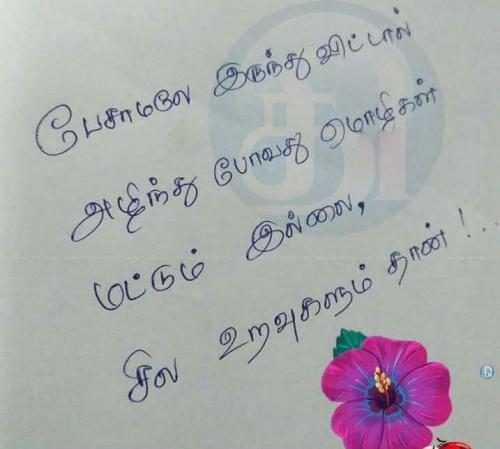 பேசாமலே இருந்து விட்டால்
அழிந்து போவது மொழிகள்
மட்டும் இல்லை,
சில உறவுகளும் தான்!...